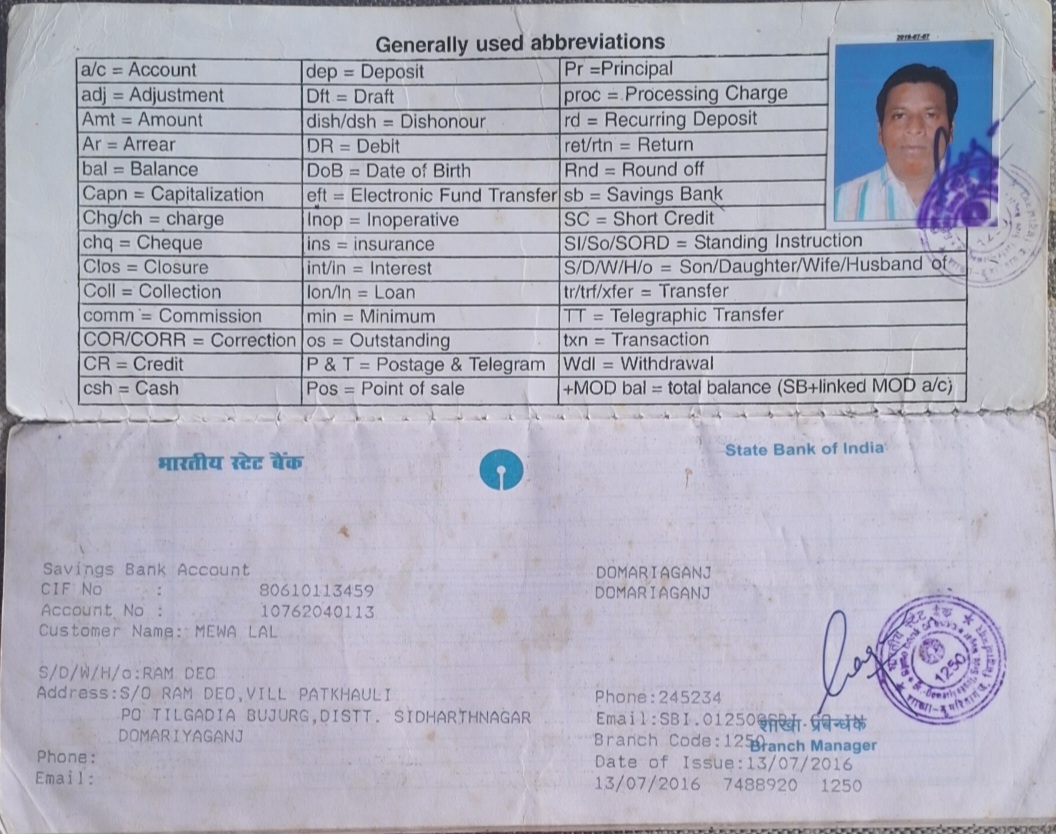 2016-07-07
Generally used abbreviations
a/c = Account dep = Deposit Pr =Principal
adj = Adjustment Dft = Draft proc = Processing Charge
Amt = Amount dish/dsh = Dishonour rd = Recurring Deposit
Ar = Arrear DR = Debit ret/rtn = Return
bal = Balance DoB = Date of Birth Rnd = Round off
Capn = Capitalization eft = Electronic Fund Transfer sb = Savings Bank
Chg/ch = charge Inop = Inoperative SC = Short Credit
chq = Cheque ins = insurance SI/So/SORD = Standing Instruction
Clos = Closure int/in = Interest S/D/W/H/o = Son/Daughter/Wife/Husband of
Coll = Collection lon/ln = Loan tr/trf/xfer = Transfer
comm = Commission min = Minimum TT = Telegraphic Transfer
COR/CORR = Correction os = Outstanding txn = Transaction
CR = Credit P & T = Postage & Telegram Wdl = Withdrawal
csh = Cash Pos = Point of sale +MOD bal = total balance (SB+linked MOD a/c)
भारतीय स्टेट बैंक State Bank of India
Savings Bank Account DOMARIAGANJ
CIF No : 80610113459 DOMARIAGANJ
Account No : 10762040113
Customer Name: MEWA LAL
S/D/W/H/o:RAM DEO
Address:S/O RAM DEO,VILL PATKHAULI Phone:245234
PO TILGADIA BUJURG,DISTT. SIDHARTHNAGAR Email:SBI.01250
शाखा प्रबन्धक
DOMARIYAGANJ Branch Code:1250
Branch Manager
Phone: Date of Issue:13/07/2016
Email: 13/07/2016 7488920 1250
भारतीय स्टेट बैंक
1250